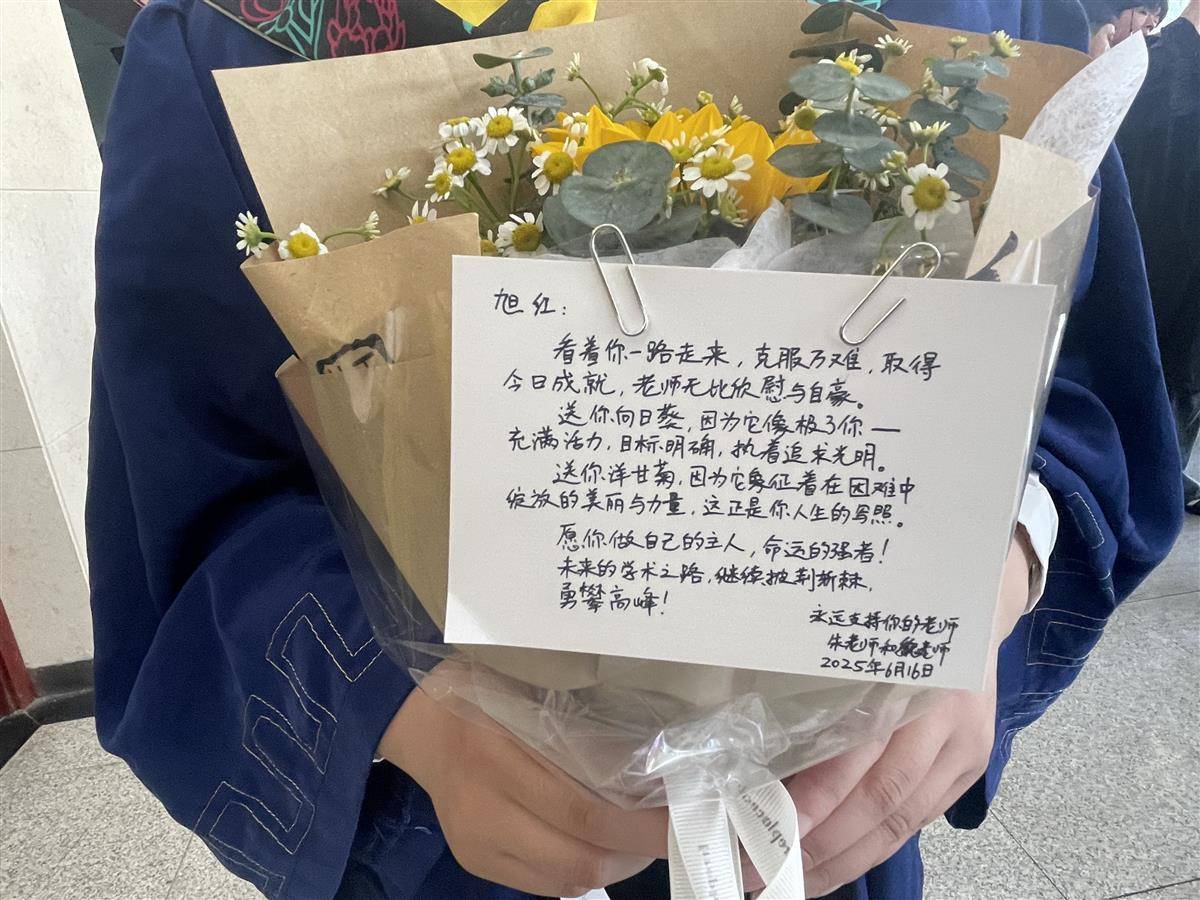 旭红：
看着你一路走来，克服万难，取得
今日成就，老师无比欣慰与自豪。
送你向日葵，因为它像极了你——
充满活力，目标明确，执着追求光明。
送你洋甘菊，因为它象征着在困难中
绽放的美丽与力量，这正是你人生的写照。
愿你做自己的主人，命运的强者！
未来的学术之路，继续披荆斩棘，
勇攀高峰！
永远支持你的老师
朱老师和魏老师
2025年6月16日